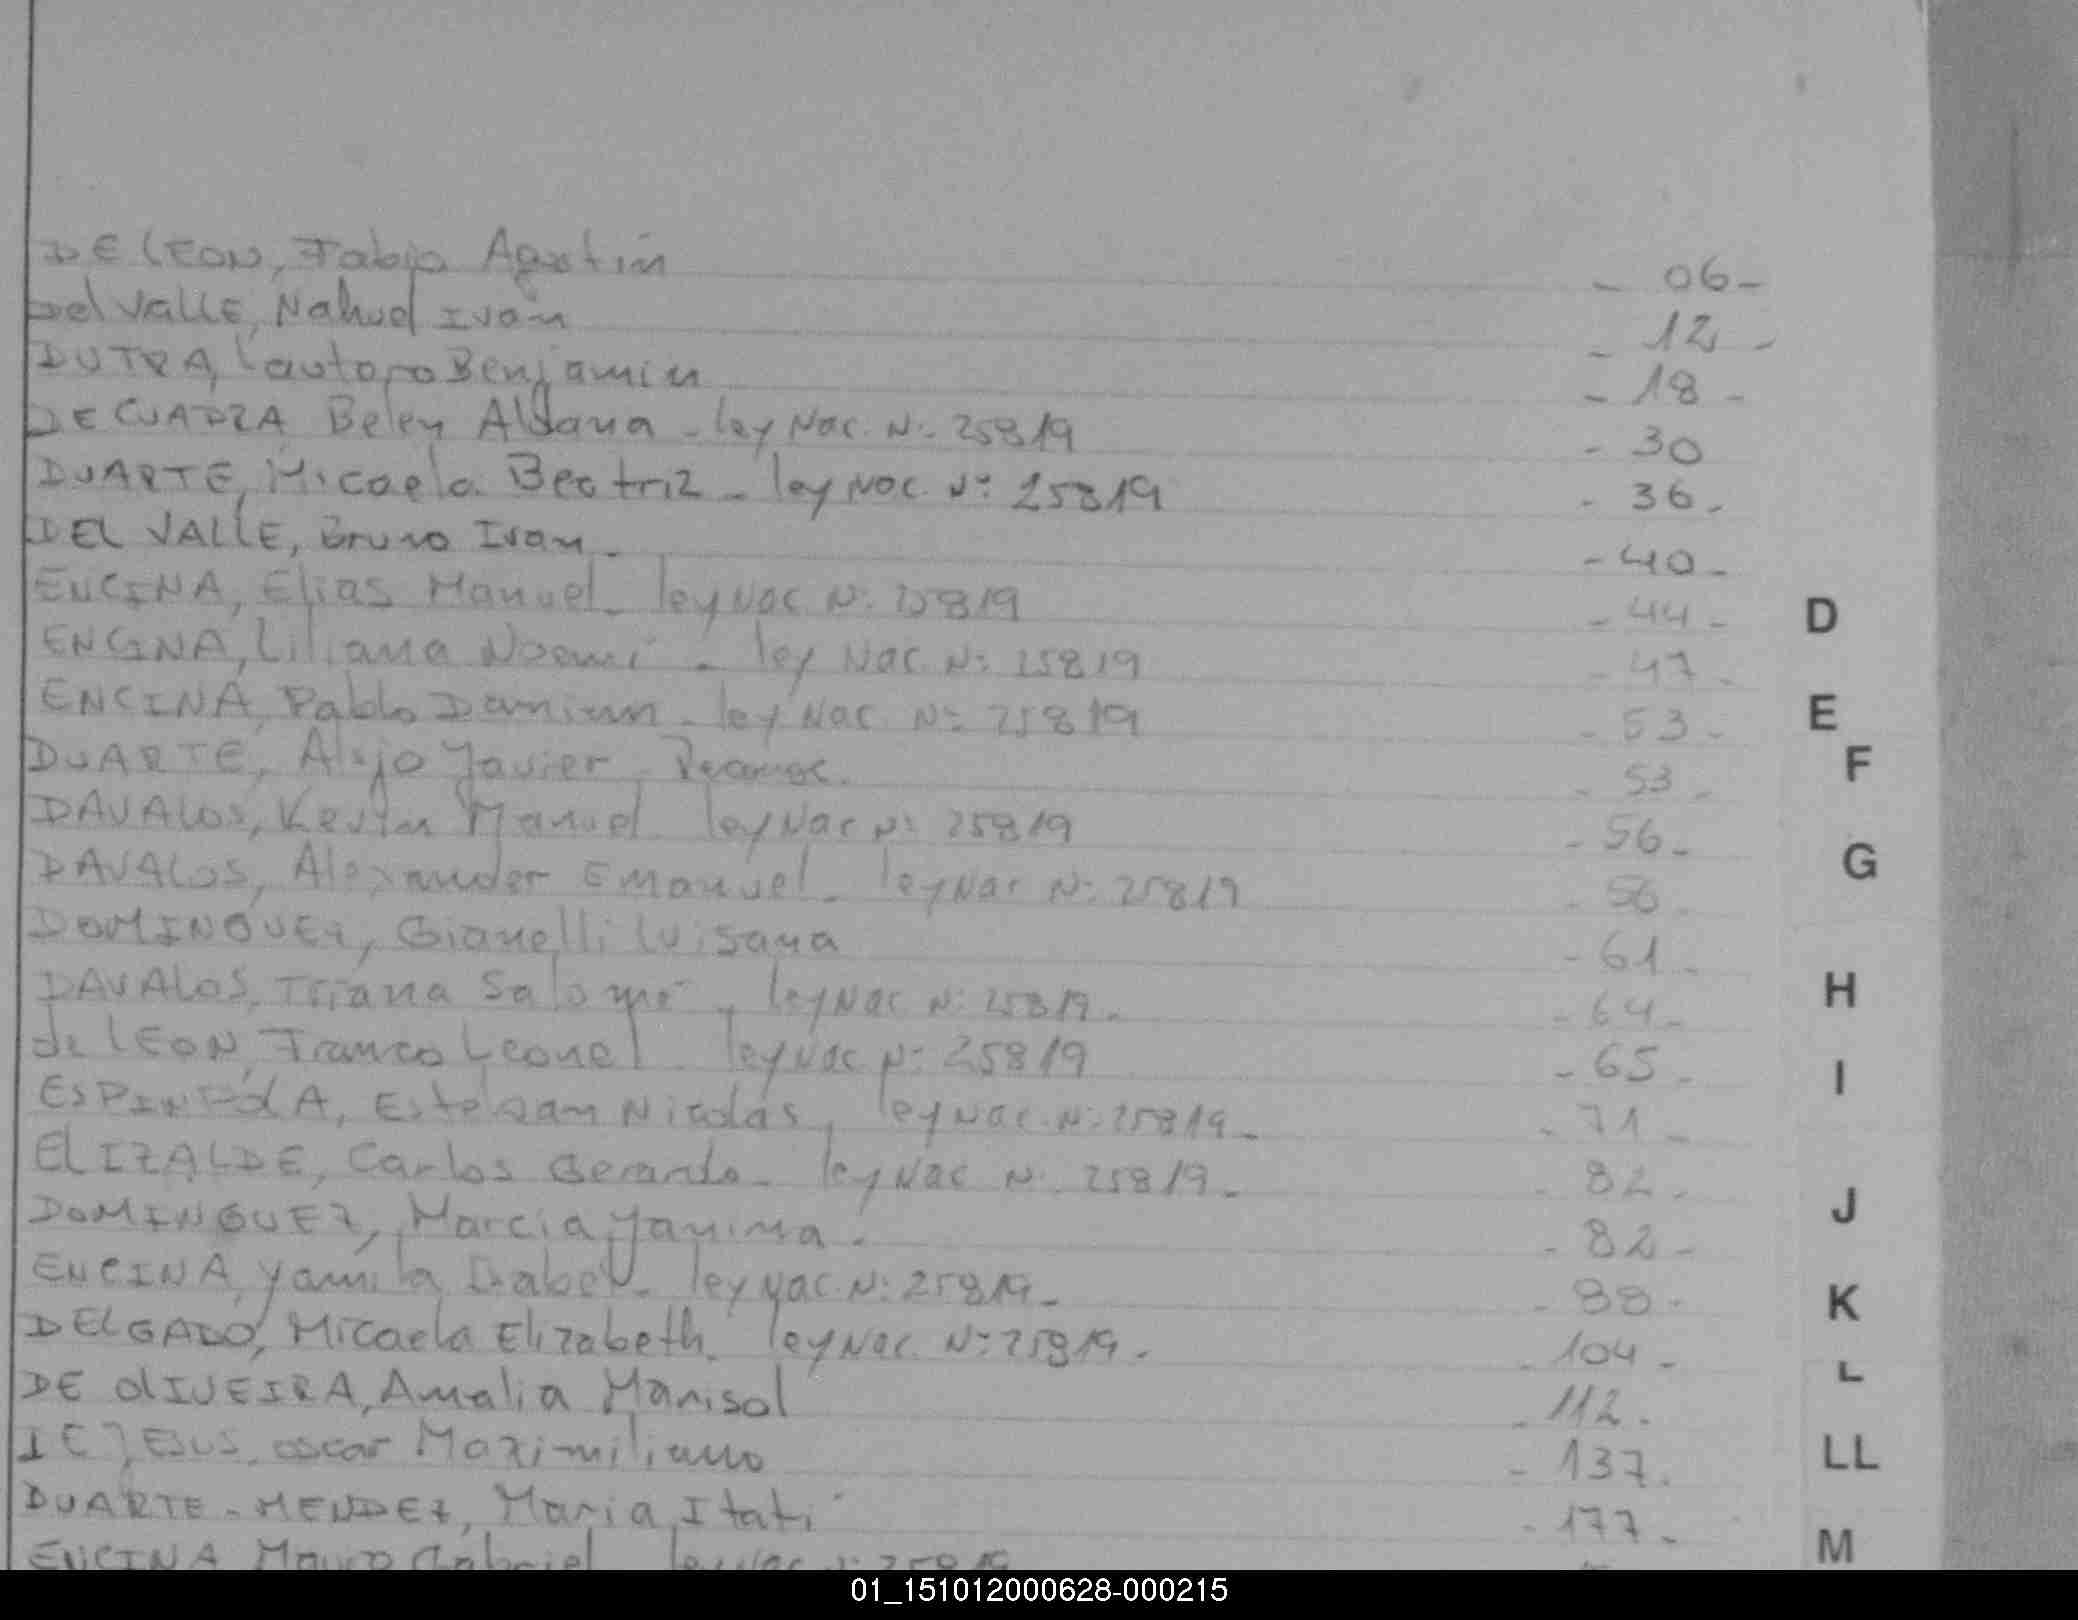 DE LEON, Fabio Agustín - 06 -
Del VALLE, Nahuel Iván - 12 -
DUTRA, Lautaro Benjamin - 18 -
DE CUADRA Belen Aldana - ley Nac. N: 25819 - 30
DUARTE, Micaela Beatriz - ley Nac. N: 25819 - 36 -
DEL VALLE, Bruno Ivan - - 40 -
ENCINA, Elias Manuel - ley Nac. N: 25819 - 44 -
ENCINA, Liliana Noemí - ley Nac. N: 25819 - 47 -
ENCINA, Pablo Damian - ley Nac. N: 25819 - 53 -
DUARTE, Alejo Javier - - 53 -
DAVALOS, Kevin Manuel ley Nac N: 25819 - 56 -
DAVALOS, Alexander Emanuel - ley Nac N: 25819 - 56 -
DOMINGUEZ, Gianelli Luisana - 61 -
DAVALOS, Triana Salomé - ley Nac N: 25819 - - 64 -
de LEON, Franco Leonel - ley Nac N: 25819 - 65 -
ESPINDOLA, Esteban Nicolás, ley Nac. N: 25819 - - 71 -
ELIZALDE, Carlos Gerardo - ley Nac N: 25819 - - 82 -
DOMINGUEZ, Marcia Yanina - - 82 -
ENCINA, Yamila Isabel - ley Nac. N: 25819 - - 88 -
DELGADO, Micaela Elizabeth - ley Nac. N: 25819 - - 104 -
DE OLIVEIRA, Amalia Marisol - 112 -
DE JESUS, oscar Maximiliano - 137 -
DUARTE - MENDEZ, Maria Itatí - 177 -
ENCINA Mauro Gabriel ley Nac N: 25819
D
E
F
G
H
I
J
K
L
LL
M
01_151012000628-000215